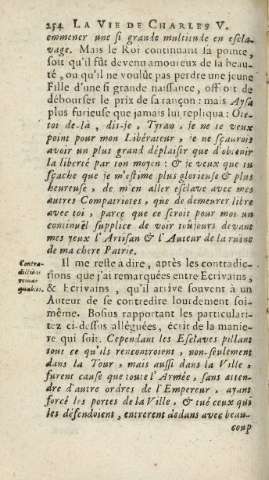 254 LA VIE DE CHARLES V.
emmener une si grande multitude en escla-
vage. Mais le Roi continuant la pointe,
soit qu'il fût devenu amoureux de la beau-
té, ou qu'il ne voulût pas perdre une jeune
Fille d'une si grande naissance, offroit de
débourser le prix de sa rançon: mais Aysa
plus furieuse que jamais lui repliqua: Ote-
toi de-là, dit-je, Tyran, je ne te veux
point pour mon Libérateur, je ne sçaurois
avoir un plus grand déplaisir que d'obtenir
la liberté par ton moyen: & je veux que tu
sçache que je m'estime plus glorieuse & plus
heureuse, de m'en aller esclave avec mes
autres Compatriotes, que de demeurer libre
avec toi, parce que ce seroit pour moi un
continuël supplice de voir toujours devant
mes yeux l'Artisan & l'Auteur de la ruine
de ma chere Patrie.
Contra-
dictions
remar-
quables.
Il me reste a dire, après les contradic-
tions que j'ai remarquées entre Ecrivains,
& Ecrivains, qu'il arrive souvent à un
Auteur de se contredire lourdement soi-
même. Bosius rapportant les particulari-
tez ci-dessus alléguées, écrit de la manie-
re qui soit. Cependant les Esclaves pillant
tout ce qu'ils rencontroient, non-seulement
dans la Tour, mais aussi dans la Ville,
furent cause que toute l'Armée, sans atten-
dre d'autre ordres de l'Empereur, ayant
forcé les portes de la Ville, & tué ceux qui
les défendoient, entrerent dedans avec beau-
coup